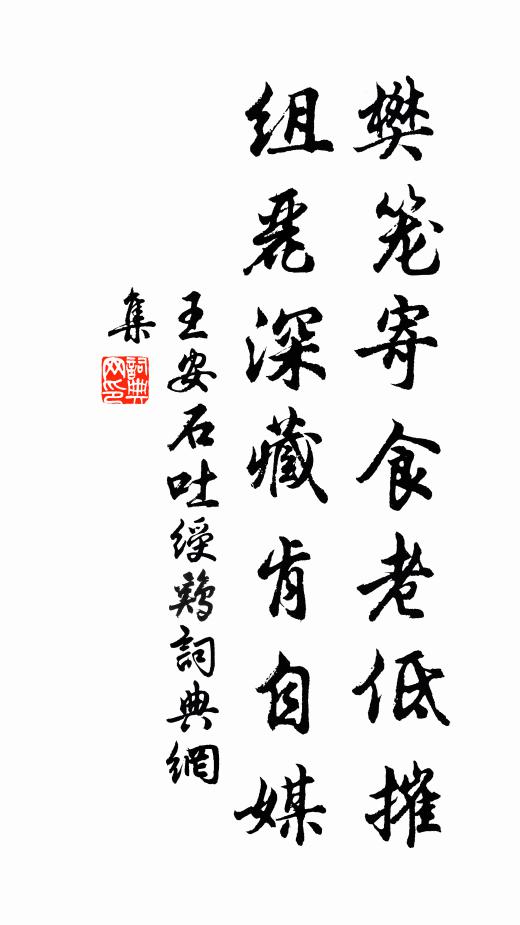 樊笼寄食老低摧
组丽深藏肯自媒
王安石吐綬鷄詞典網
集
詞典网印